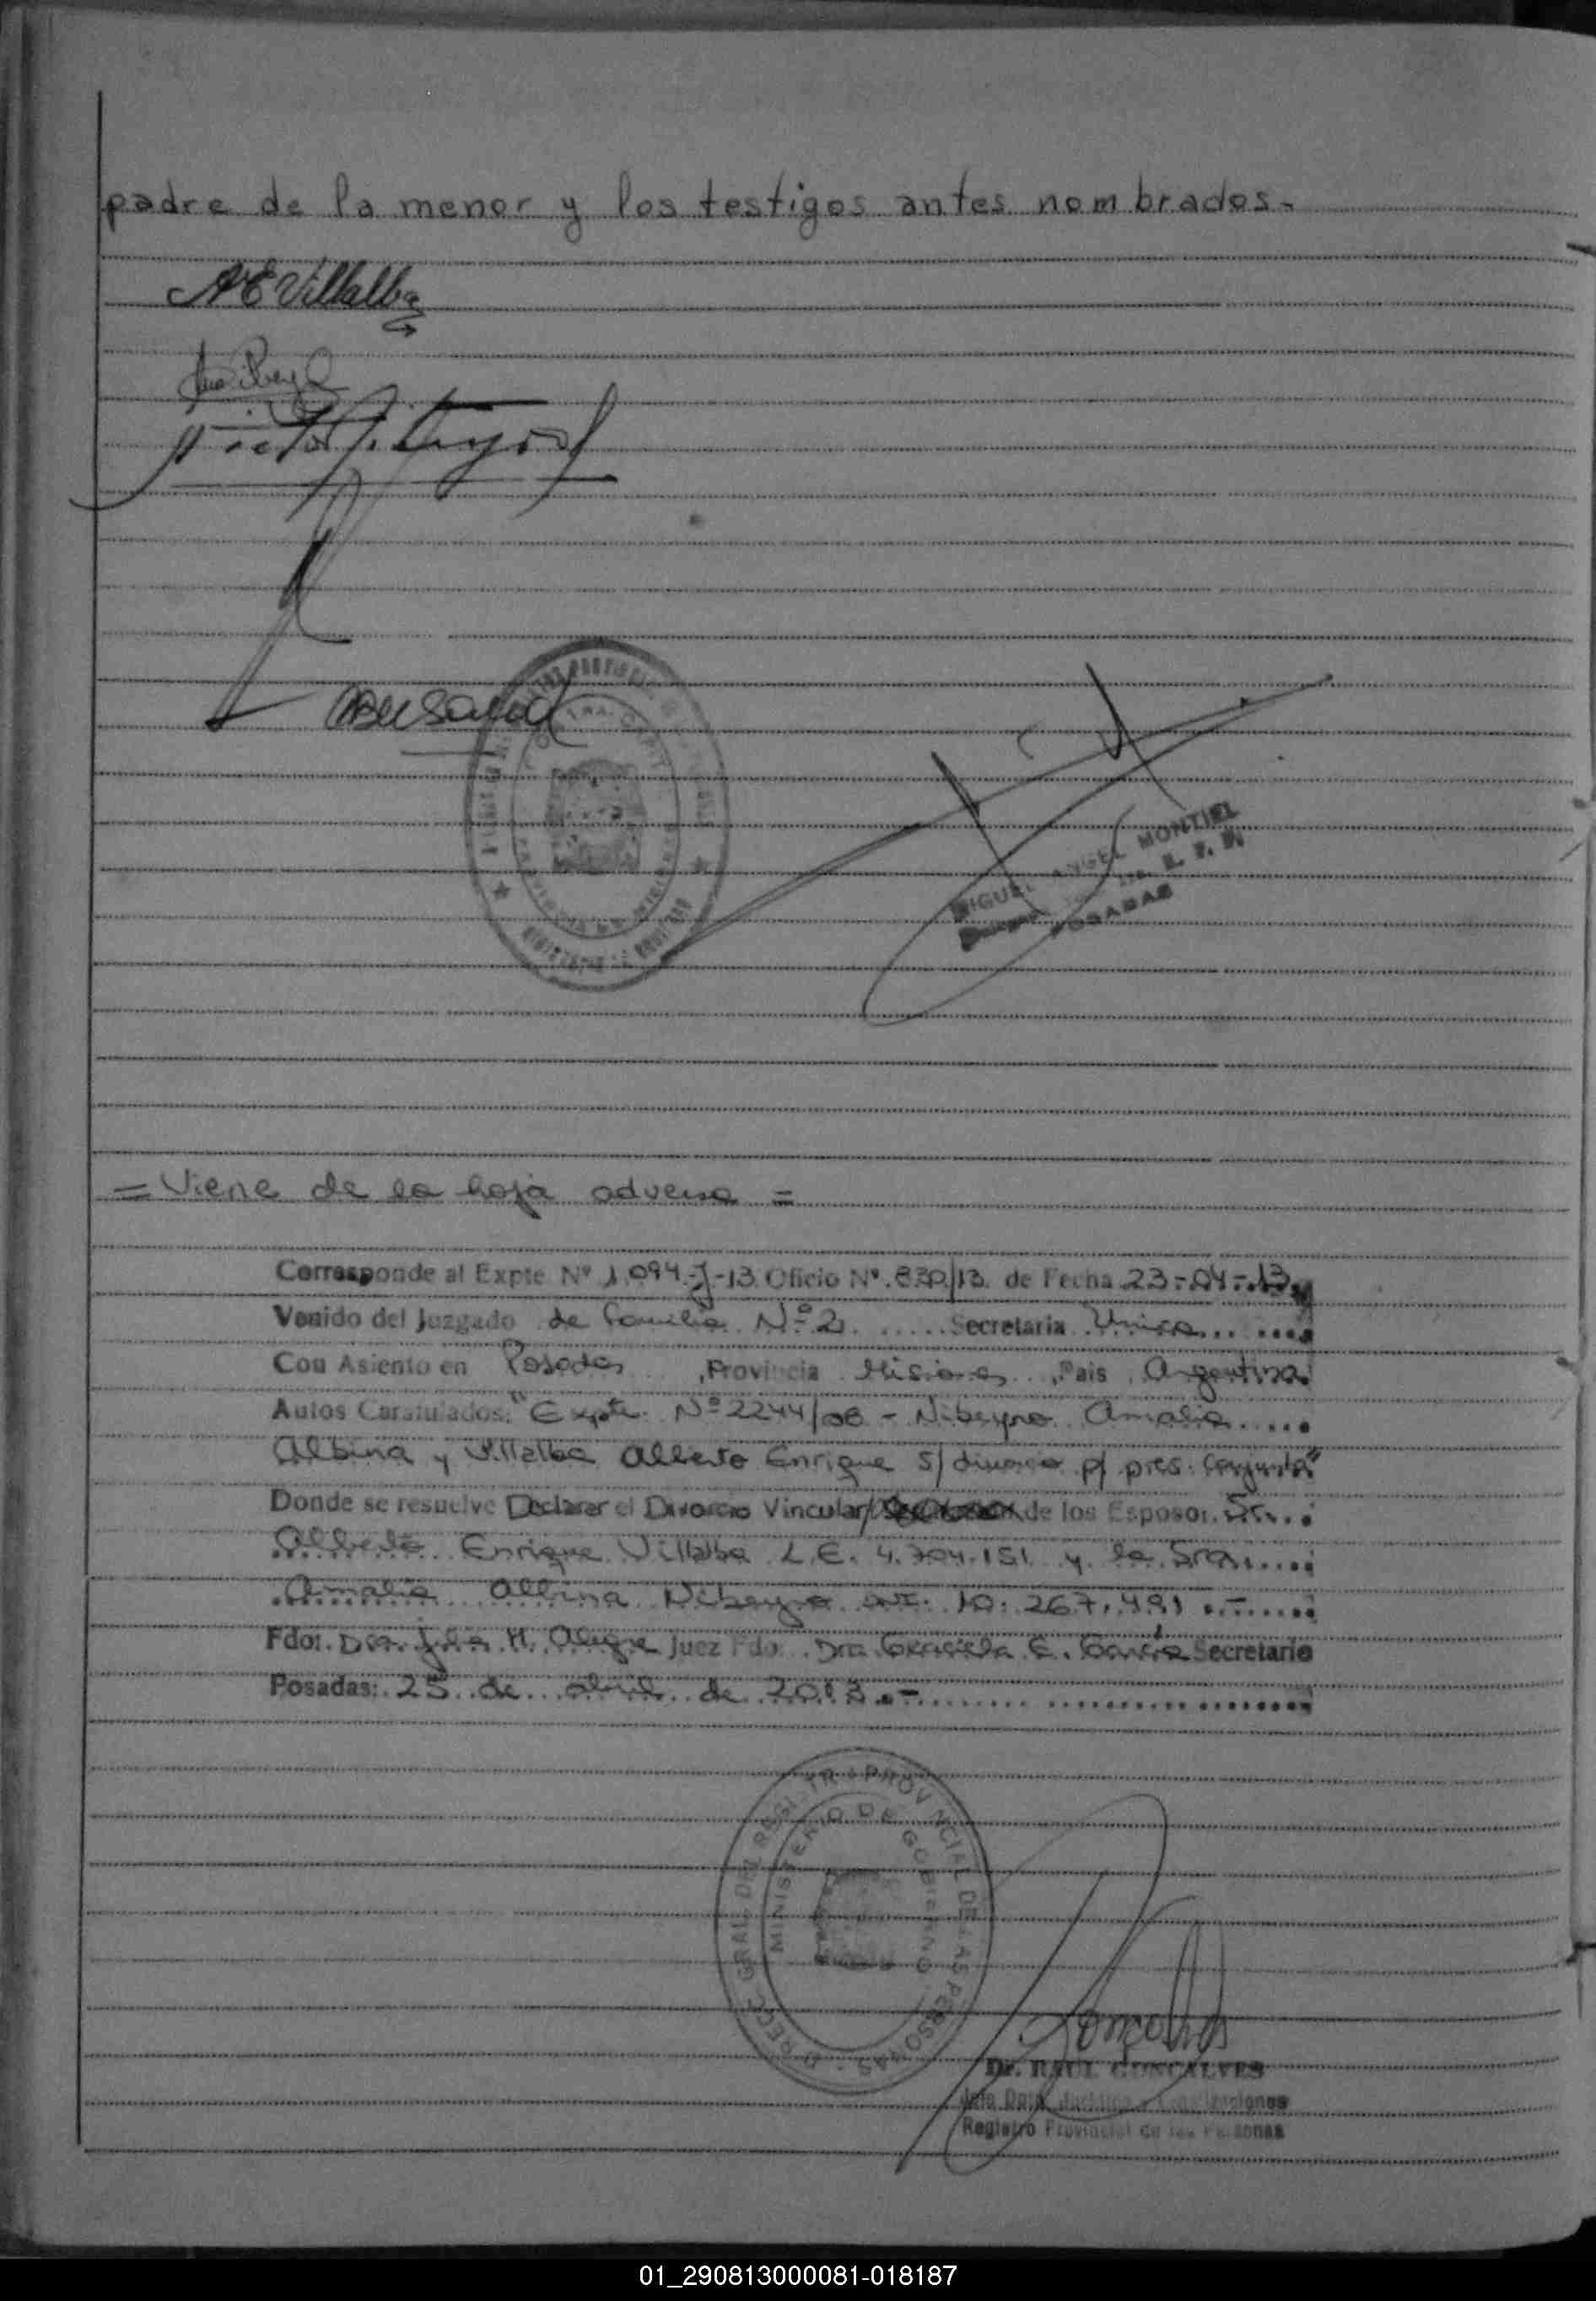 padre de la menor y los testigos antes nombrados.-
AE Villalba
MIGUEL ANGEL MONTIEL
POSADAS
= Viene de la hoja adversa =
Corresponde al Expte Nº 1.094-J-13 Oficio Nº. 830/13. de Fecha 23-04-13
Venido del Juzgado de Familia Nº 2. ..... Secretaria Unica... ....
Con Asiento en Posadas ,Provincia Misiones ,Pais Argentina.
Autos Caratulados: "Expte. Nº 2244/08 - Nibeyro Amalia ....
Albina y Villalba Alberto Enrique s/ divorcio p/ pres. conjunta"
Donde se resuelve Declarar el Divorcio Vincular/ de los Esposos. Sr...
Alberto Enrique Villalba L.E. 4.704.151 y la Sra.....
Amalia Albina Nibeyro 10.267.491 .-......
Fdo: Dra. Julia H. Alegre Juez Fdo: Dra Graciela E. García Secretario
Posadas: 25 de abril de 2013.-
DIRECC. GRAL. DEL REGISTRO PROVINCIAL DE LAS PERSONAS
MINISTERIO DE GOBIERNO
Dr. RAUL GONCALVES
Registro Provincial de las Personas
01_290813000081-018187